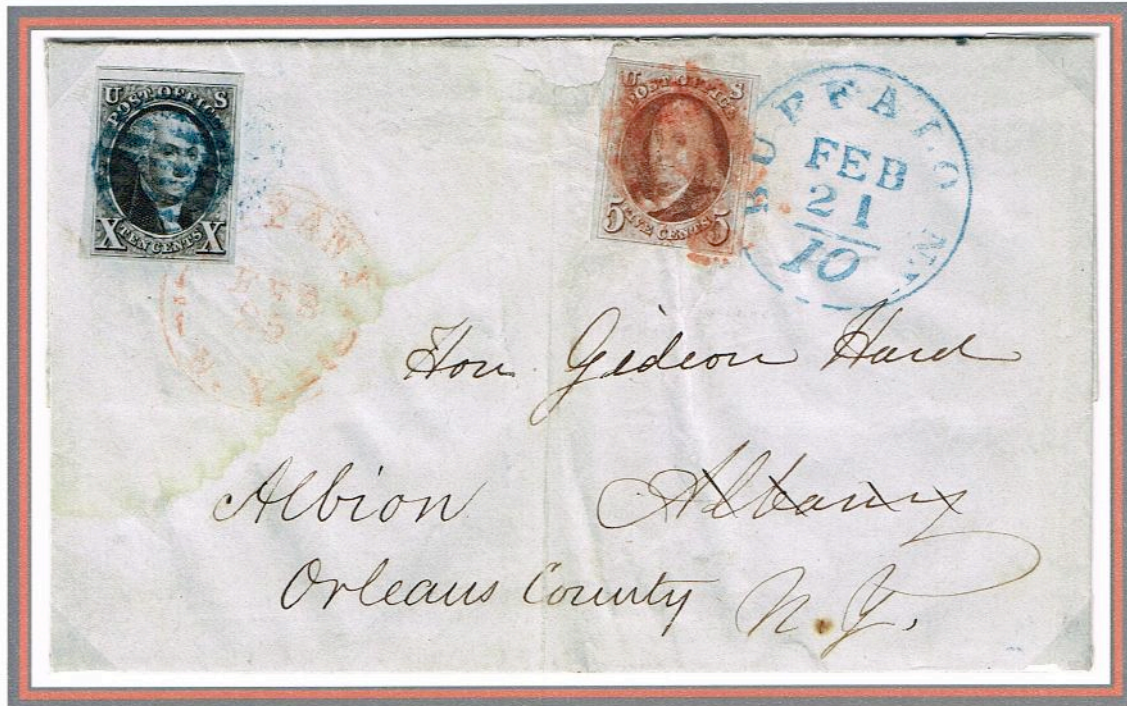 U S
POST OFFICE
X TEN CENTS X
U S
POST OFFICE
5 FIVE CENTS 5
BUFFALO N.Y.
FEB
21
10
FEB
Hon Gideon Hard
Albion Albany
Orleans County N.Y.